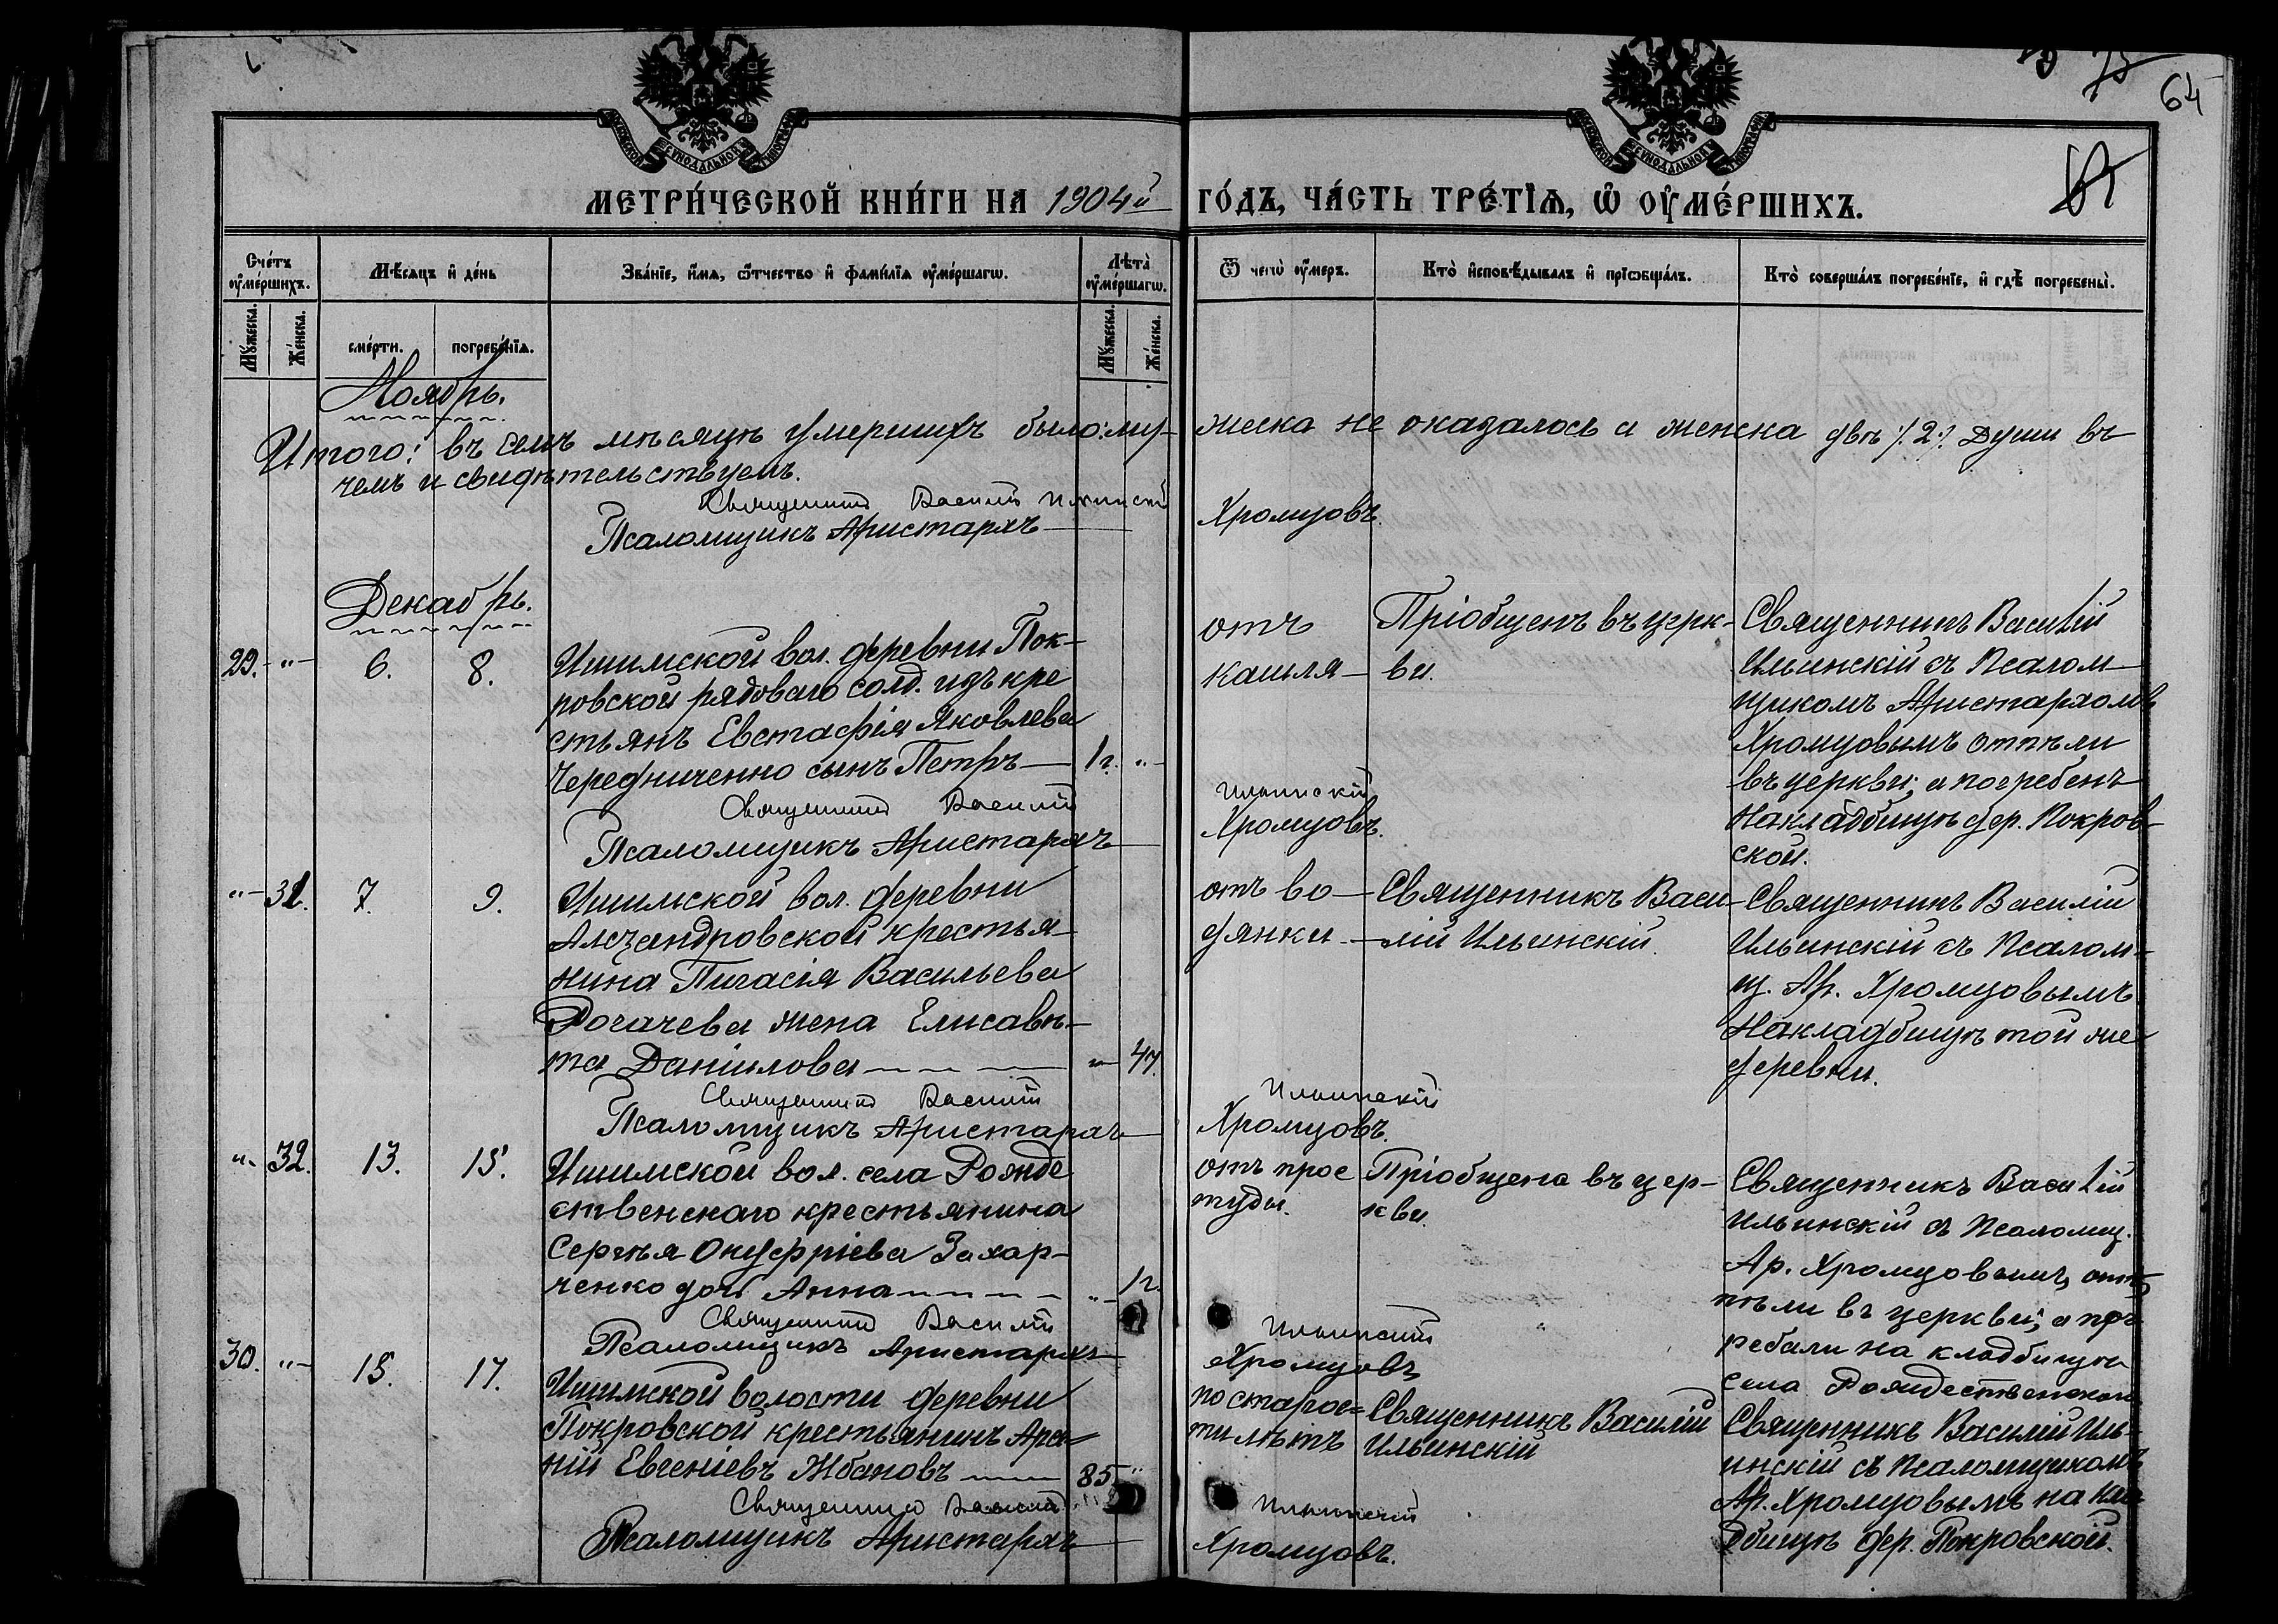 75
64
МОСКОВСКОЙ СѴНОДАЛЬНОЙ ТИПОГРАФІИ
МОСКОВСКОЙ СѴНОДАЛЬНОЙ ТИПОГРАФІИ
МЕТРИ́ЧЕСКОЙ КНИ́ГИ НА 1904й ГО́ДЪ, ЧА́СТЬ ТРЕ́ТІѦ, Ѡ ОУ҆МЕ́РШИХЪ.
Сче́тъ оу҆ме́ршихъ.
Мѣ́сяцъ и҆ де́нь
Зва́ніе, и҆́мя, ѻ҆́тчество и҆ фами́лїя оу҆ме́ршагѡ.
Лѣта̀ оу҆ме́ршагѡ.
Ѿ чегѡ̀ оу҆́меръ.
Кто̀ и҆сповѣ́дывалъ и҆ прїѡбща́лъ.
Кто̀ соверша́лъ погребе́нїе, и҆ гдѣ̀ погребены̀.
Мꙋ́жеска. Же́нска.
сме́рти. погребе́нїя.
Мꙋ́жеска. Же́нска.
Ноябрь.
Итого: въ семъ мѣсяцѣ умершихъ было: му-
жеска не оказалось а женска двѣ /2/. Души въ
чемъ и свидѣтельствуемъ.
Священникъ Василій Ильинскій
Псаломщикъ Аристархъ Хромцовъ.
Декабрь.
29. "
6. 8.
Ишимской вол. деревни Пок-
ровской рядоваго солд. изъ кре
стьянъ Евстафія Яковлева
Чередниченко сынъ Петръ — 1 г. "
отъ
кашля
Пріобщенъ въ церк-
ви.
Священникъ Василій
Ильинскій съ Псалом-
щикомъ Аристархомъ
Хромцовымъ отпѣли
въ церкви; а погребенъ
На кладбищѣ дер. Покров-
ской.
Священникъ Василій Ильинскій
Псаломщикъ Аристархъ Хромцовъ.
" 31.
7. 9.
Ишимской вол. деревни
Александровской крестья-
нина Пигасія Васильева
Рогачева жена Елисаве-
та Даніилова — " 47.
отъ во-
дянки.
Священникъ Васи-
лій Ильинскій.
Священникъ Василій
Ильинскій съ Псалом-
щ. Ар. Хромцовымъ
На кладбищѣ той же
деревни.
Священникъ Василій Ильинскій
Псаломщикъ Аристархъ Хромцовъ.
" 32.
13. 15.
Ишимской вол. села Рожде
ственскаго крестьянина
Сергѣя Онуфріева Захар-
ченко дочь Анна — " 1 г.
отъ прос
туды.
Пріобщена въ цер-
кви.
Священникъ Василій
Ильинскій съ Псаломщ.
Ар. Хромцовымъ, отъ
пѣли въ церкви; а пог
ребали на кладбищѣ
села Рождественскаго
Священникъ Василій Ильинскій
Псаломщикъ Аристархъ Хромцовъ
30. "
15. 17.
Ишимской волости деревни
Покровской крестьянинъ Арсе-
ній Евгеніевъ Жбановъ — 85 "
по старос=
ти лѣтъ
Священникъ Василій
Ильинскій
Священникъ Василій Иль-
инскій съ Псаломщикомъ
Ар. Хромцовымъ на кла-
дбищѣ дер. Покровской.
Священникъ Василій Ильинскій
Псаломщикъ Аристархъ Хромцовъ.